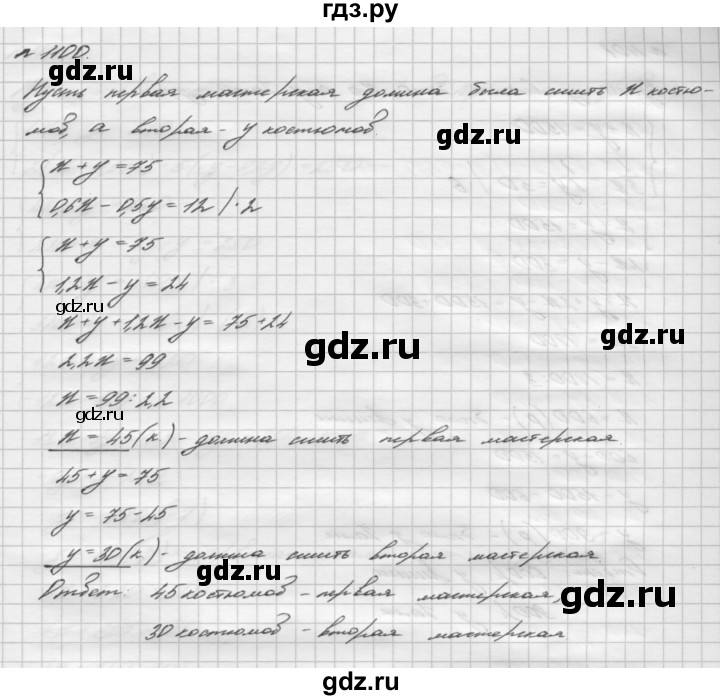 гдз.ру
№ 1100.
Пусть первая мастерская должна была сшить x костю-
мов, а вторая - y костюмов.
gdz.ru
x + y = 75
0,6x - 0,5y = 12 / · 2
x + y = 75
1,2x - y = 24
gdz.ru
x + y + 1,2x - y = 75 + 24
gdz.ru
gdz.ru
2,2x = 99
x = 99 : 2,2
gdz.ru
x = 45 (к) - должна сшить первая мастерская.
45 + y = 75
y = 75 - 45
y = 30 (к) - должна сшить вторая мастерская.
gdz.ru
Ответ: 45 костюмов - первая мастерская,
gdz.ru
30 костюмов - вторая мастерская
gdz.ru